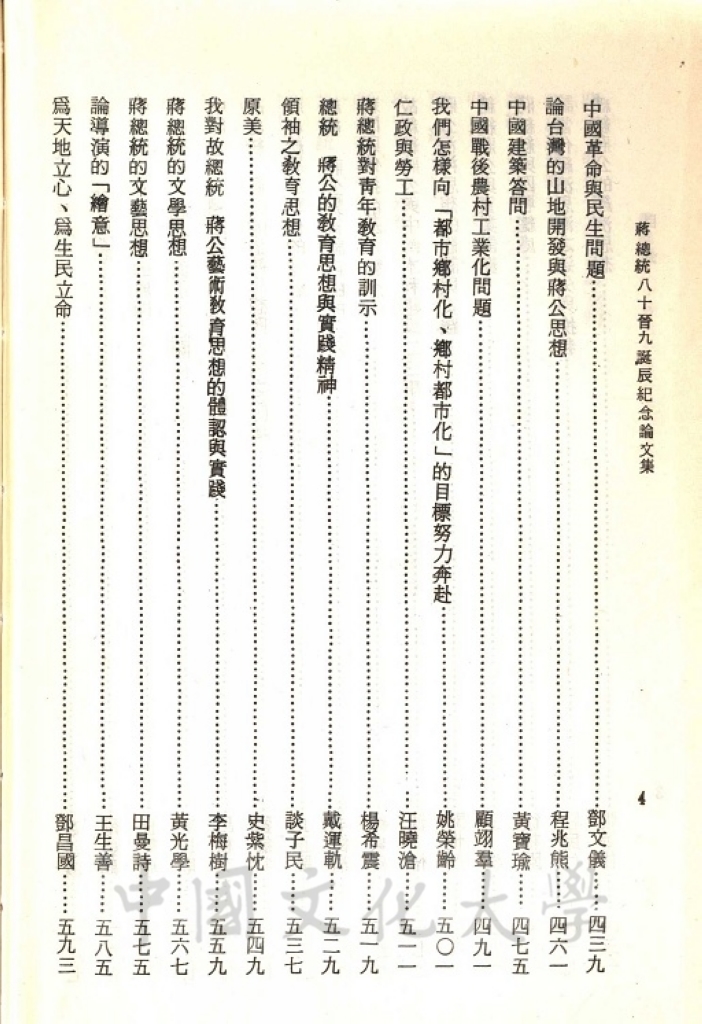 蔣總統八十晉九誕辰紀念論文集
4
中國革命與民生問題……鄧文儀……四三九
論台灣的山地開發與蔣公思想……程兆熊……四六一
中國建築答問……黃寶瑜……四七五
中國戰後農村工業化問題……顧翊羣……四九一
我們怎樣向「都市鄉村化、鄉村都市化」的目標努力奔赴……姚榮齡……五〇一
仁政與勞工……汪曉滄……五一一
蔣總統對青年教育的訓示……楊希震……五一九
總統　蔣公的教育思想與實踐精神……戴運軌……五二九
領袖之教育思想……談子民……五三七
原美……史紫忱……五四九
我對故總統　蔣公藝術教育思想的體認與實踐……李梅樹……五五九
蔣總統的文學思想……黃光學……五六七
蔣總統的文藝思想……田曼詩……五七五
論導演的「繪意」……王生善……五八五
爲天地立心、爲生民立命……鄧昌國……五九三
中國文化大學